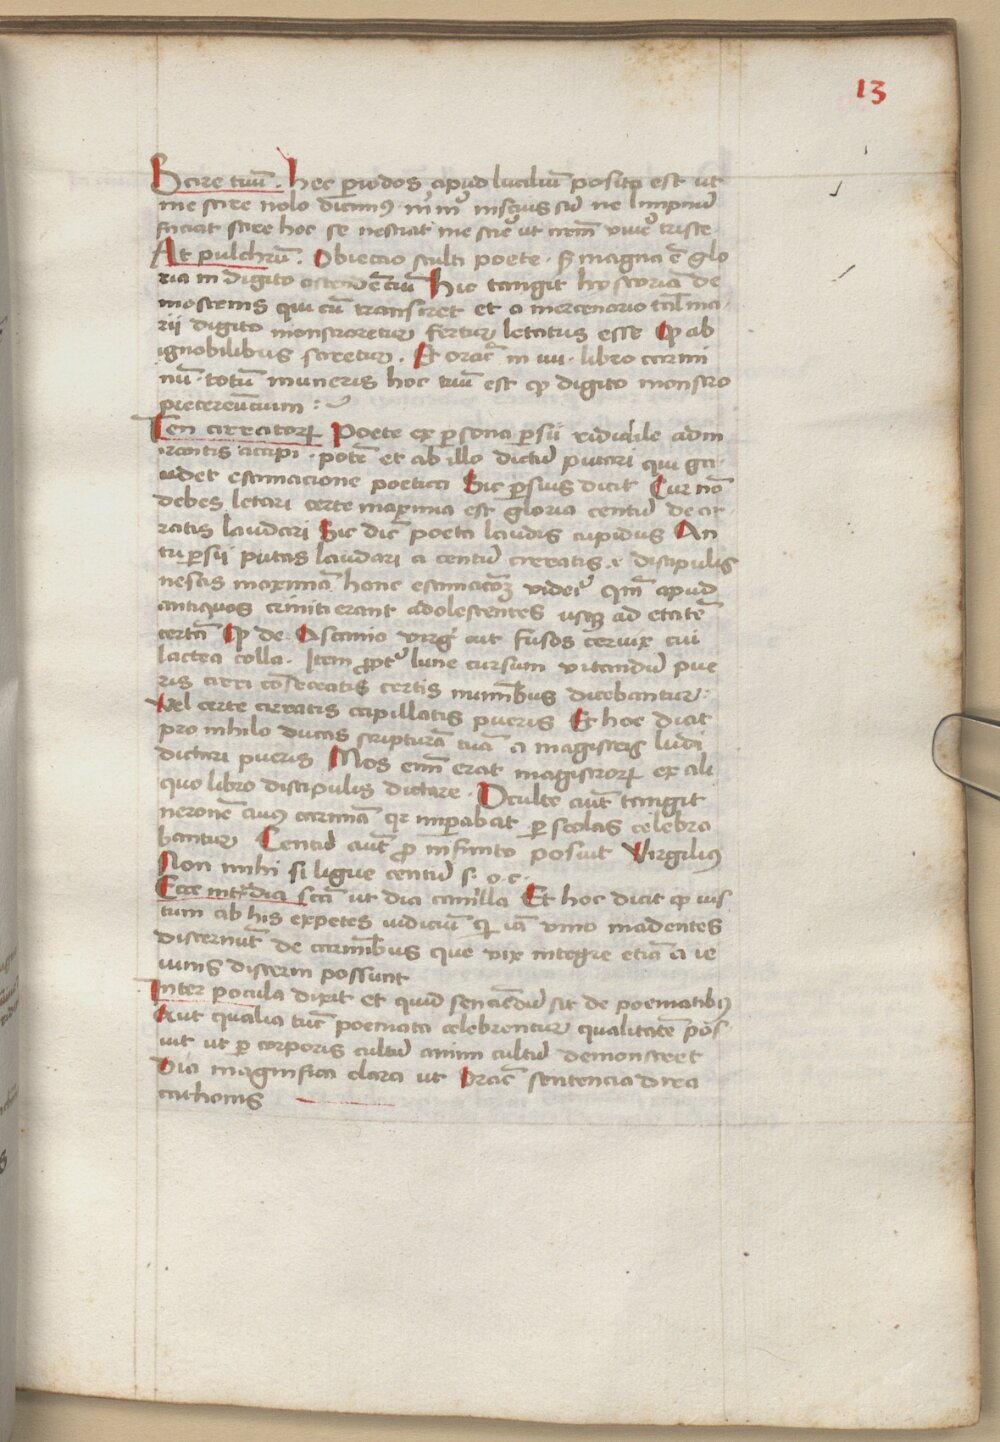 13
Scire tuũ . Hec periodos apud luciliũ posita est ut
me scire nolo dicimus
faciat scire hoc se nesciat me scire ut nem̃ vive triste
At pulchrũ . Obiectio stulti poete . magna ẽ glo
ria in digito ostendẽciũ Hic tangit hystoriã de
mostenis qui cũ transiret et a mercenario
rii digito monstraretur fertur letatus esse qp ab
ignobilibus sciretur . Et orac̃ in iiii . libro carmi
nũ . totũ muneris hoc tuũ est qp digito monstro
pretereũcium :
Ten cirratorꝝ Poete ex p̱sona p̱sii ridicule adm
irantis accipi . potẽ et ab illo dictũ putari qui ga
udet estimacione poetica Sic p̱sius dicit Cur nõ
debes letari certe maxima est gloria centũ de cir
ratis laudari Sic dic̃ poeta laudis cupidus An
tu p̱sii putas laudari a centũ cirratis .i. discipulis
nescis maximã hanc estimacõꝫ videri qm̃ apud
antiquos criniti erant adolescentes usqꝫ ad etatẽ
certã qp de Ascanio virg̃ aut fusos cervix cui
lactea colla . Item ꝓpt lune cursum vitandũ pue
ris cirri cõsecratis certis numĩbus dicebantur .
Vel certe cirratis capillatis pueris Et hoc dicit
pro nihilo ducas scripturã tuã a magistris ludi
dictari pueris Mos enĩ erat magistrorꝝ ex ali
quo libro discipulis dictare . Oculte aut̃ tangit
neronẽ cuius carmina qr imp̱abat p̱ scolas celebra
bantur Centũ aut̃ ꝓ infinito posuit Virgilius
Non mihi si ligue centũ s . o . c .
Ecce int̃ dia sc̃a ut dia camilla Et hoc dicit qp ius
tum ab his expetes iudiciũ qi iã vino madentes
discernũt de carmĩbus que vix integre etiã a ie
iunis discerni possunt
Inter pocula dixit et quid senciẽdũ sit de poematibus
Aut qualia tuc̃ poemata celebrentur qualitatẽ pos
uit ut p̱ corporis cultũ animi cultũ demonstret
Dia magnifica clara ut Orac̃ sentencia direa
cathonis